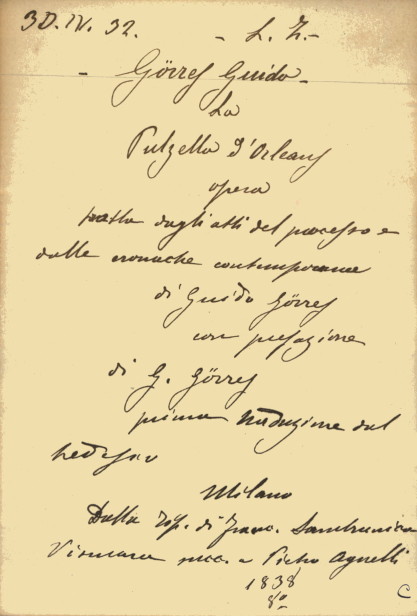 30.IV.32. - L. Z. -
- Görres Guido -
La
Pulzella D'Orleans
opera
tratta dagli atti del processo e
dalle cronache contemporanee
di Guido Görres
con prefazione
di G. Görres
prima traduzione dal
tedesco
Milano
Dalla Tip. di Franc. Sambrunico
Vismara succ. a Pietro Agnelli
1838
8º
C